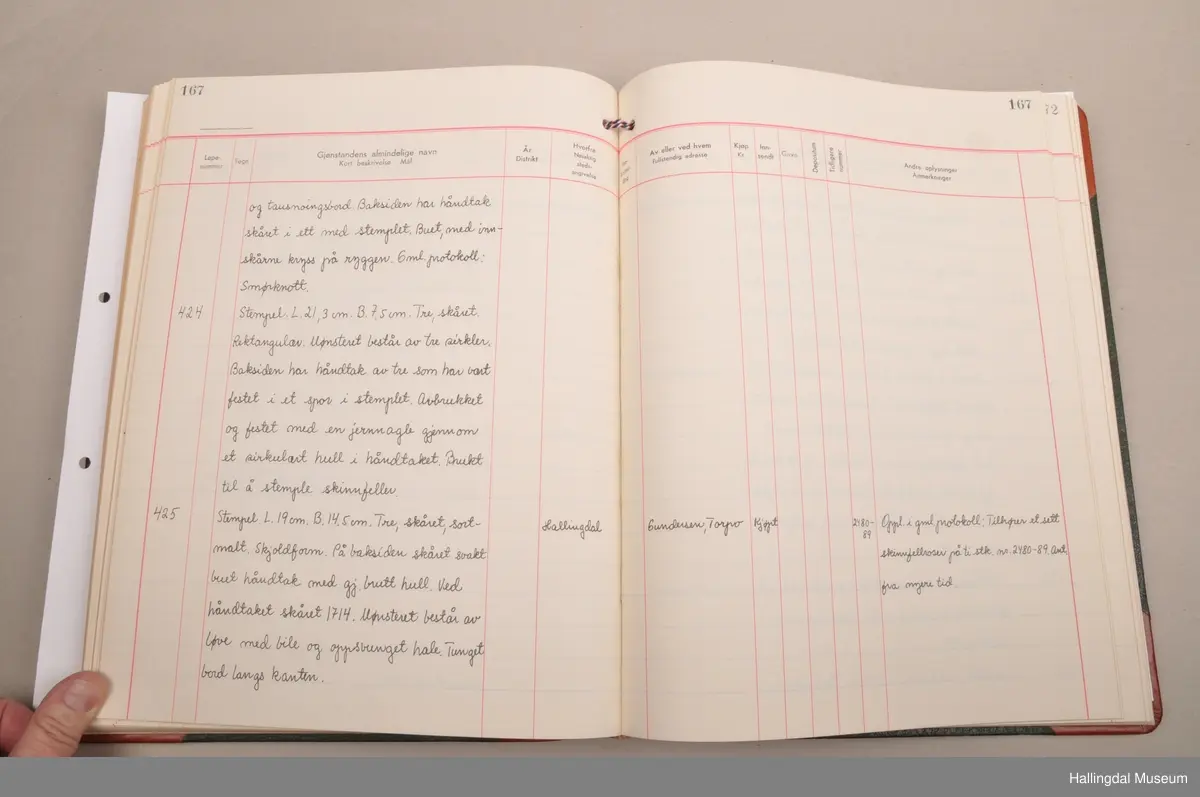 167
Løpe-
nummer
Tegn.
Gjenstandens almindelige navn
Kort beskrivelse Mål
År.
Distrikt
Hvorfra
Nøiaktig
steds-
angivelse
og tausnoingsbord. Baksiden har håndtak
skåret i ett med stemplet. Buet, med inn-
skårne kryss på ryggen. Gml. protokoll:
Smørknott.
424
Stempel. L. 21,3 cm. B. 7,5 cm. Tre, skåret.
Rektangulær. Mønsteret består av tre sirkler.
Baksiden har håndtak av tre som har vært
festet i et spor i stemplet. Avbrukket
og festet med en jernnagle gjennom
et sirkulært hull i håndtaket. Brukt
til å stemple skinnfeller.
425
Stempel. L. 19 cm. B. 14,5 cm. Tre, skåret, sort-
malt. Skjoldform. På baksiden skåret svakt
buet håndtak med gj. brutt hull. Ved
håndtaket skåret 1714. Mønsteret består av
løve med bile og oppsvunget hale. Tunget
bord langs kanten.
Hallingdal
167
72
Av eller ved hvem
Fullstendig adresse
Kjøp
Kr.
Inn-
sendt
Gave
Depositum
Tidligere
nummer
Andre oplysninger
Anmerkninger
Gundersen, Torpo
Kjøpt
2480-
89
Oppl. i gml protokoll: Tilhører et sett
skinnfellroser på ti stk. nr. 2480-89. Ant.
fra nyere tid.
Hallingdal Museum